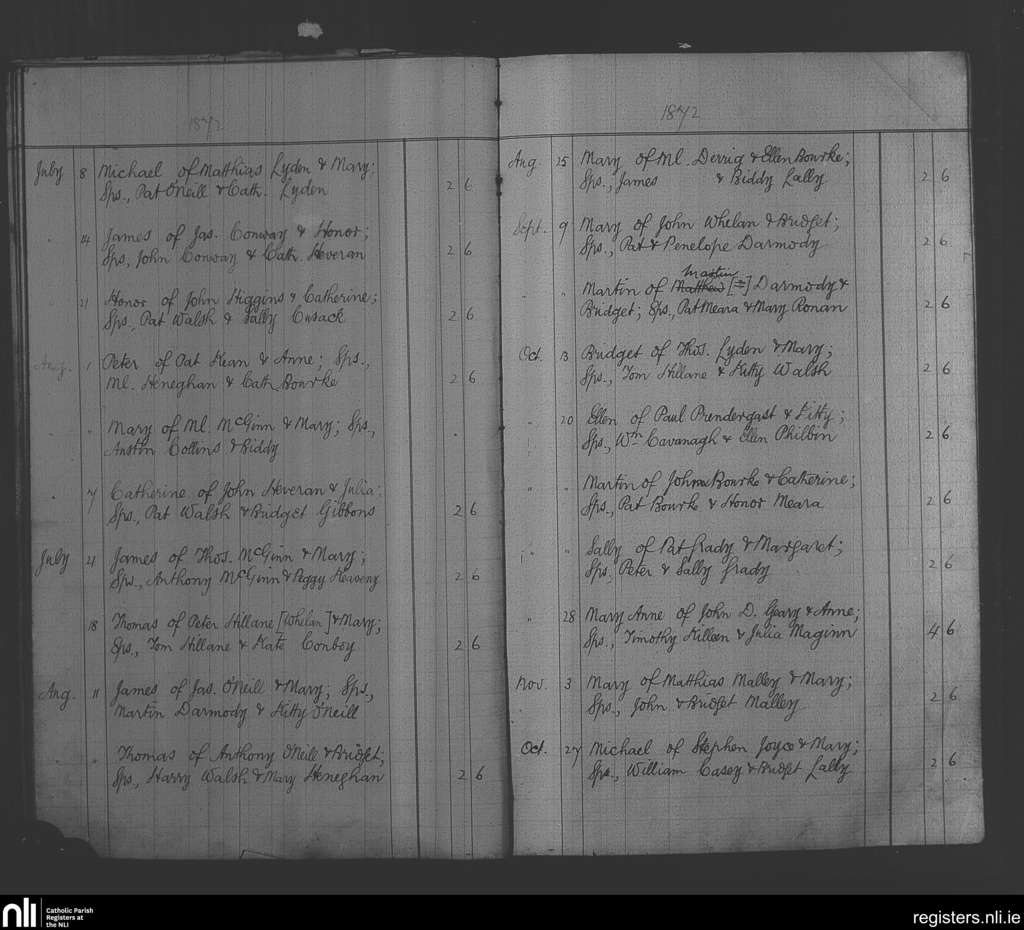 1872
July 8 Michael of Matthias Lyden & Mary;
Sps., Pat O'Neill & Cath. Lyden 2 6
" 14 James of Jas. Conway & Honor;
Sps, John Conway & Cath. Heveran 2 6
" 21 Honor of John Higgins & Catherine;
Sps., Pat Walsh & Sally Cusack 2 6
Aug. 1 Peter of Pat Kean & Anne; Sps.,
Ml. Heneghan & Cath. Bourke 2 6
" " Mary of Ml. McGinn & Mary; Sps,
Austin Collins & Biddy
" 7 Catherine of John Heveran & Julia;
Sps., Pat Walsh & Bridget Gibbons 2 6
July 21 James of Thos. McGinn & Mary;
Sps., Anthony McGinn & Peggy Keaveny 2 6
18 Thomas of Peter Hillane [Whelan] & Mary;
Sps., Tom Hillane & Kate Conboy 2 6
Aug. 11 James of Jas. O'Neill & Mary; Sps.,
Martin Darmody & Kitty O'Neill
" " Thomas of Anthony O'Neill & Bridget;
Sps., Harry Walsh & Mary Heneghan 2 6
1872
Aug. 15 Mary of Ml. Derrig & Ellen Bourke;
Sps., James & Biddy Lally 2 6
Sept. 9 Mary of John Whelan & Bridget;
Sps., Pat & Penelope Darmody 2 6
Martin
" " Martin of Matthew [=] Darmody &
Bridget; Sps., Pat Meara & Mary Ronan 2 6
Oct. 13 Bridget of Thos. Lyden & Mary;
Sps., Tom Hillane & Kitty Walsh 2 6
" 20 Ellen of Paul Prendergast & Kitty;
Sps., Wm. Cavanagh & Ellen Philbin 2 6
" " Martin of John Bourke & Catherine;
Sps., Pat Bourke & Honor Meara 2 6
" " Sally of Pat Grady & Margaret;
Sps. Peter & Sally Grady 2 6
" 28 Mary Anne of John D. Geary & Anne;
Sps., Timothy Killeen & Julia Maginn 4 6
Nov. 3 Mary of Matthias Malley & Mary;
Sps., John & Bridget Malley 2 6
Oct. 27 Michael of Stephen Joyce & Mary;
Sps., William Casey & Bridget Lally 2 6
nli
Catholic Parish
Registers at
the NLI
registers.nli.ie